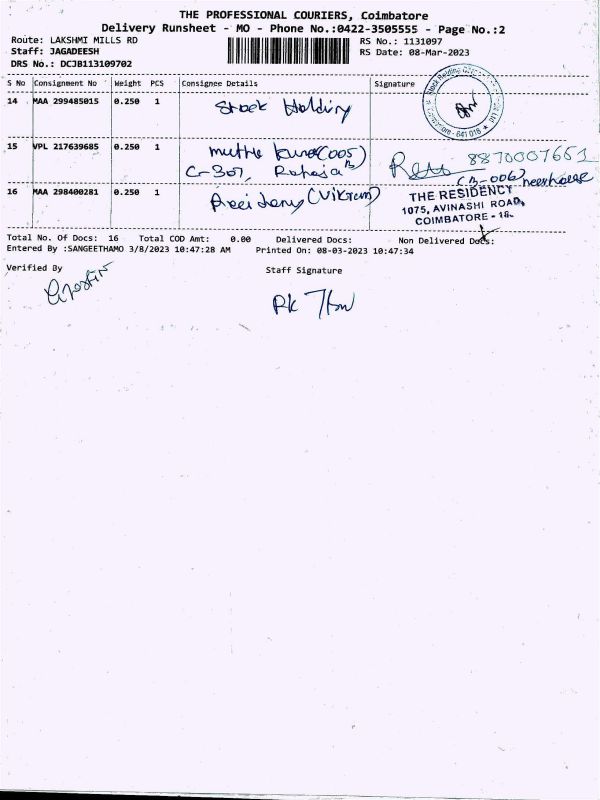 THE PROFESSIONAL COURIERS, Coimbatore
Delivery Runsheet - MO - Phone No.:0422-3505555 - Page No.:2
Route: LAKSHMI MILLS RD RS No.: 1131097
Staff: JAGADEESH RS Date: 08-Mar-2023
DRS No.: DCJB113109702
S No Consignment No Weight PCS Consignee Details Signature
14 MAA 299485015 0.250 1 Stock Holding
Stock Holding
641 018
15 VPL 217639685 0.250 1 (005) 8870007651
C-307, Raheja
16 MAA 298400281 0.250 1 Residency (Vikram)
THE RESIDENCY
1075, AVINASHI ROAD,
COIMBATORE - 18.
Total No. Of Docs: 16 Total COD Amt: 0.00 Delivered Docs: Non Delivered Docs:
Entered By :SANGEETHAMO 3/8/2023 10:47:28 AM Printed On: 08-03-2023 10:47:34
Verified By Staff Signature